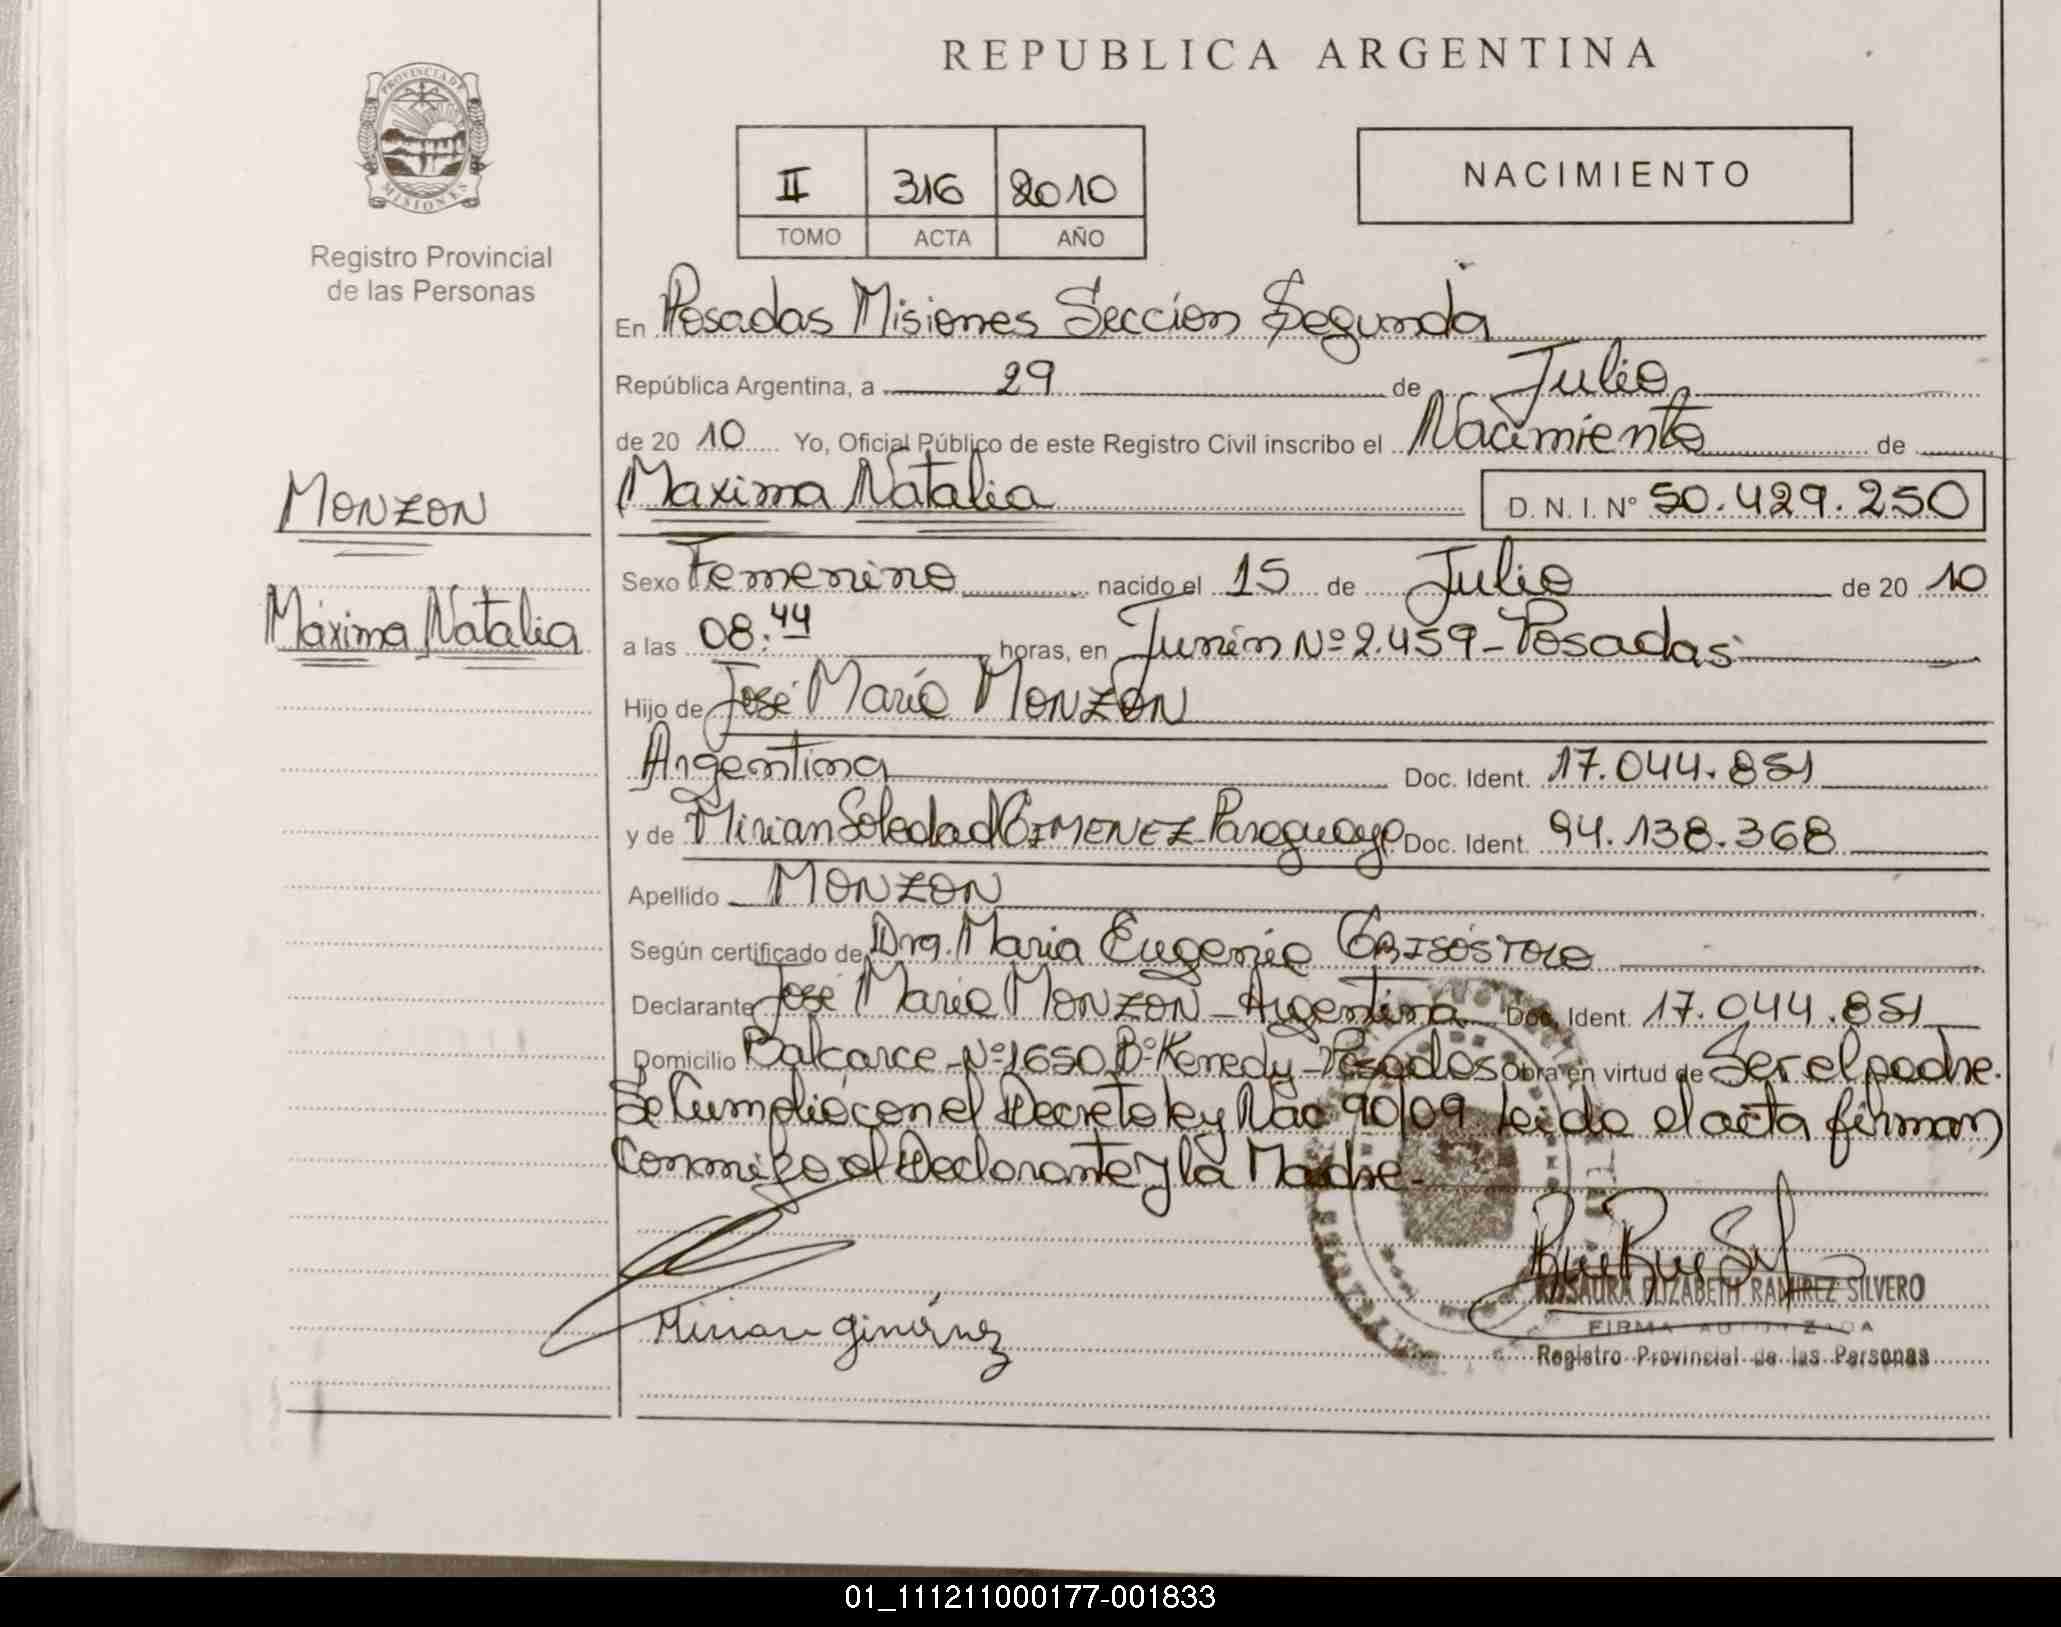 REPUBLICA ARGENTINA
PROVINCIA DE MISIONES
Registro Provincial
de las Personas
II 316 2010
TOMO ACTA AÑO
NACIMIENTO
En Posadas Misiones Seccion Segunda
República Argentina, a 29 de Julio
de 20 10 Yo, Oficial Público de este Registro Civil inscribo el Nacimiento de
MONZON
Maxima Natalia D. N. I. Nº 50.429.250
Sexo Femenino nacido el 15 de Julio de 20 10
Máxima Natalia
a las 08:44 horas, en Junín Nº 2.459 - Posadas
Hijo de José Mario MONZON
Argentina Doc. Ident. 17.044.851
y de Mirian Soledad GIMENEZ - Paraguaya Doc. Ident. 94.138.368
Apellido MONZON
Según certificado de Dra. Maria Eugenia
Declarante José Mario MONZON - Argentina Doc. Ident. 17.044.851
Domicilio Balcarce Nº 1650 Bº Kenedy - Posadas Obra en virtud de Ser el padre.
Se Cumplió con el Decreto ley Nac 90/09 Leida el acta firman
Conmigo el Declarante y la Madre.
Mirian Giménez
ROSAURA ELIZABETH RAMIREZ SILVERO
FIRMA AUTORIZADA
Registro Provincial de las Personas
01_111211000177-001833